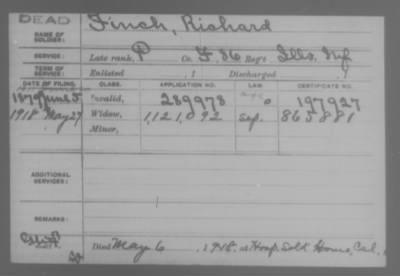 DEAD
NAME OF SOLDIER: Finch, Richard
SERVICE: Late rank, P Co. F, 36 Reg't Ills. Inf
TERM OF SERVICE: Enlisted , 1 Discharged , 1
DATE OF FILING. CLASS. APPLICATION NO. LAW. CERTIFICATE NO.
1879 June 5 Invalid, 289978 197927
1918 May 27 Widow, 1,121,092 Sep. 865881
Minor,
ADDITIONAL SERVICES:
REMARKS:
Died May 6, 1918, at Hosp Sold Home, Cal.